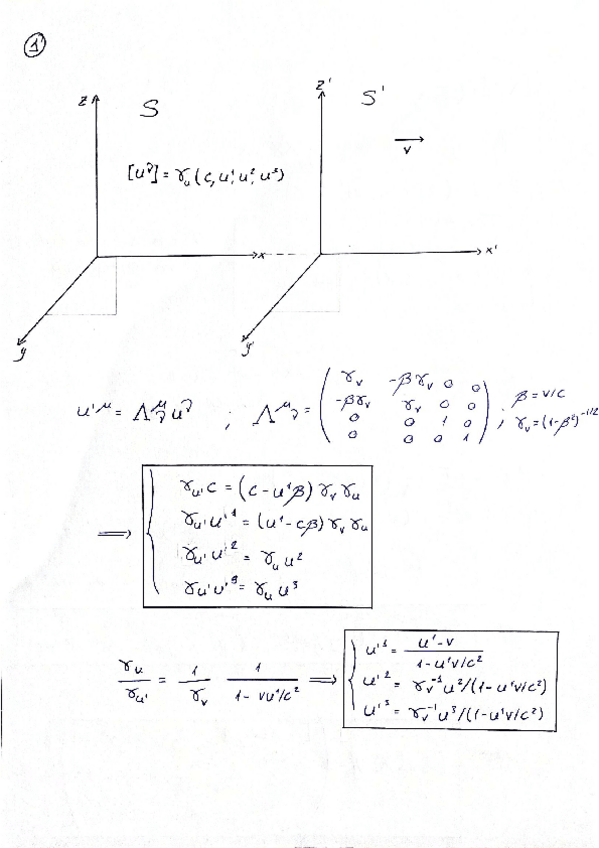 1'
z S z' S'
v
[u^ν] = γ_u (c, u^1, u^2, u^3)
x x'
y y'
u'^μ = Λ^μ_ν u^ν ; Λ^μ_ν = ( γ_v -βγ_v 0 0 ; β = v/c
-βγ_v γ_v 0 0 ; γ_v = (1-β²)^{-1/2}
0 0 1 0
0 0 0 1 )
γ_{u'} c = (c - u^1 β) γ_v γ_u
⟹ γ_{u'} u'^1 = (u^1 - cβ) γ_v γ_u
γ_{u'} u'^2 = γ_u u^2
γ_{u'} u'^3 = γ_u u^3
γ_u / γ_{u'} = 1/γ_v 1/(1 - vu^1/c²) ⟹ u'^1 = (u^1 - v)/(1 - u^1 v/c²)
u'^2 = γ_v^{-1} u^2/(1 - u^1 v/c²)
u'^3 = γ_v^{-1} u^3/(1 - u^1 v/c²)